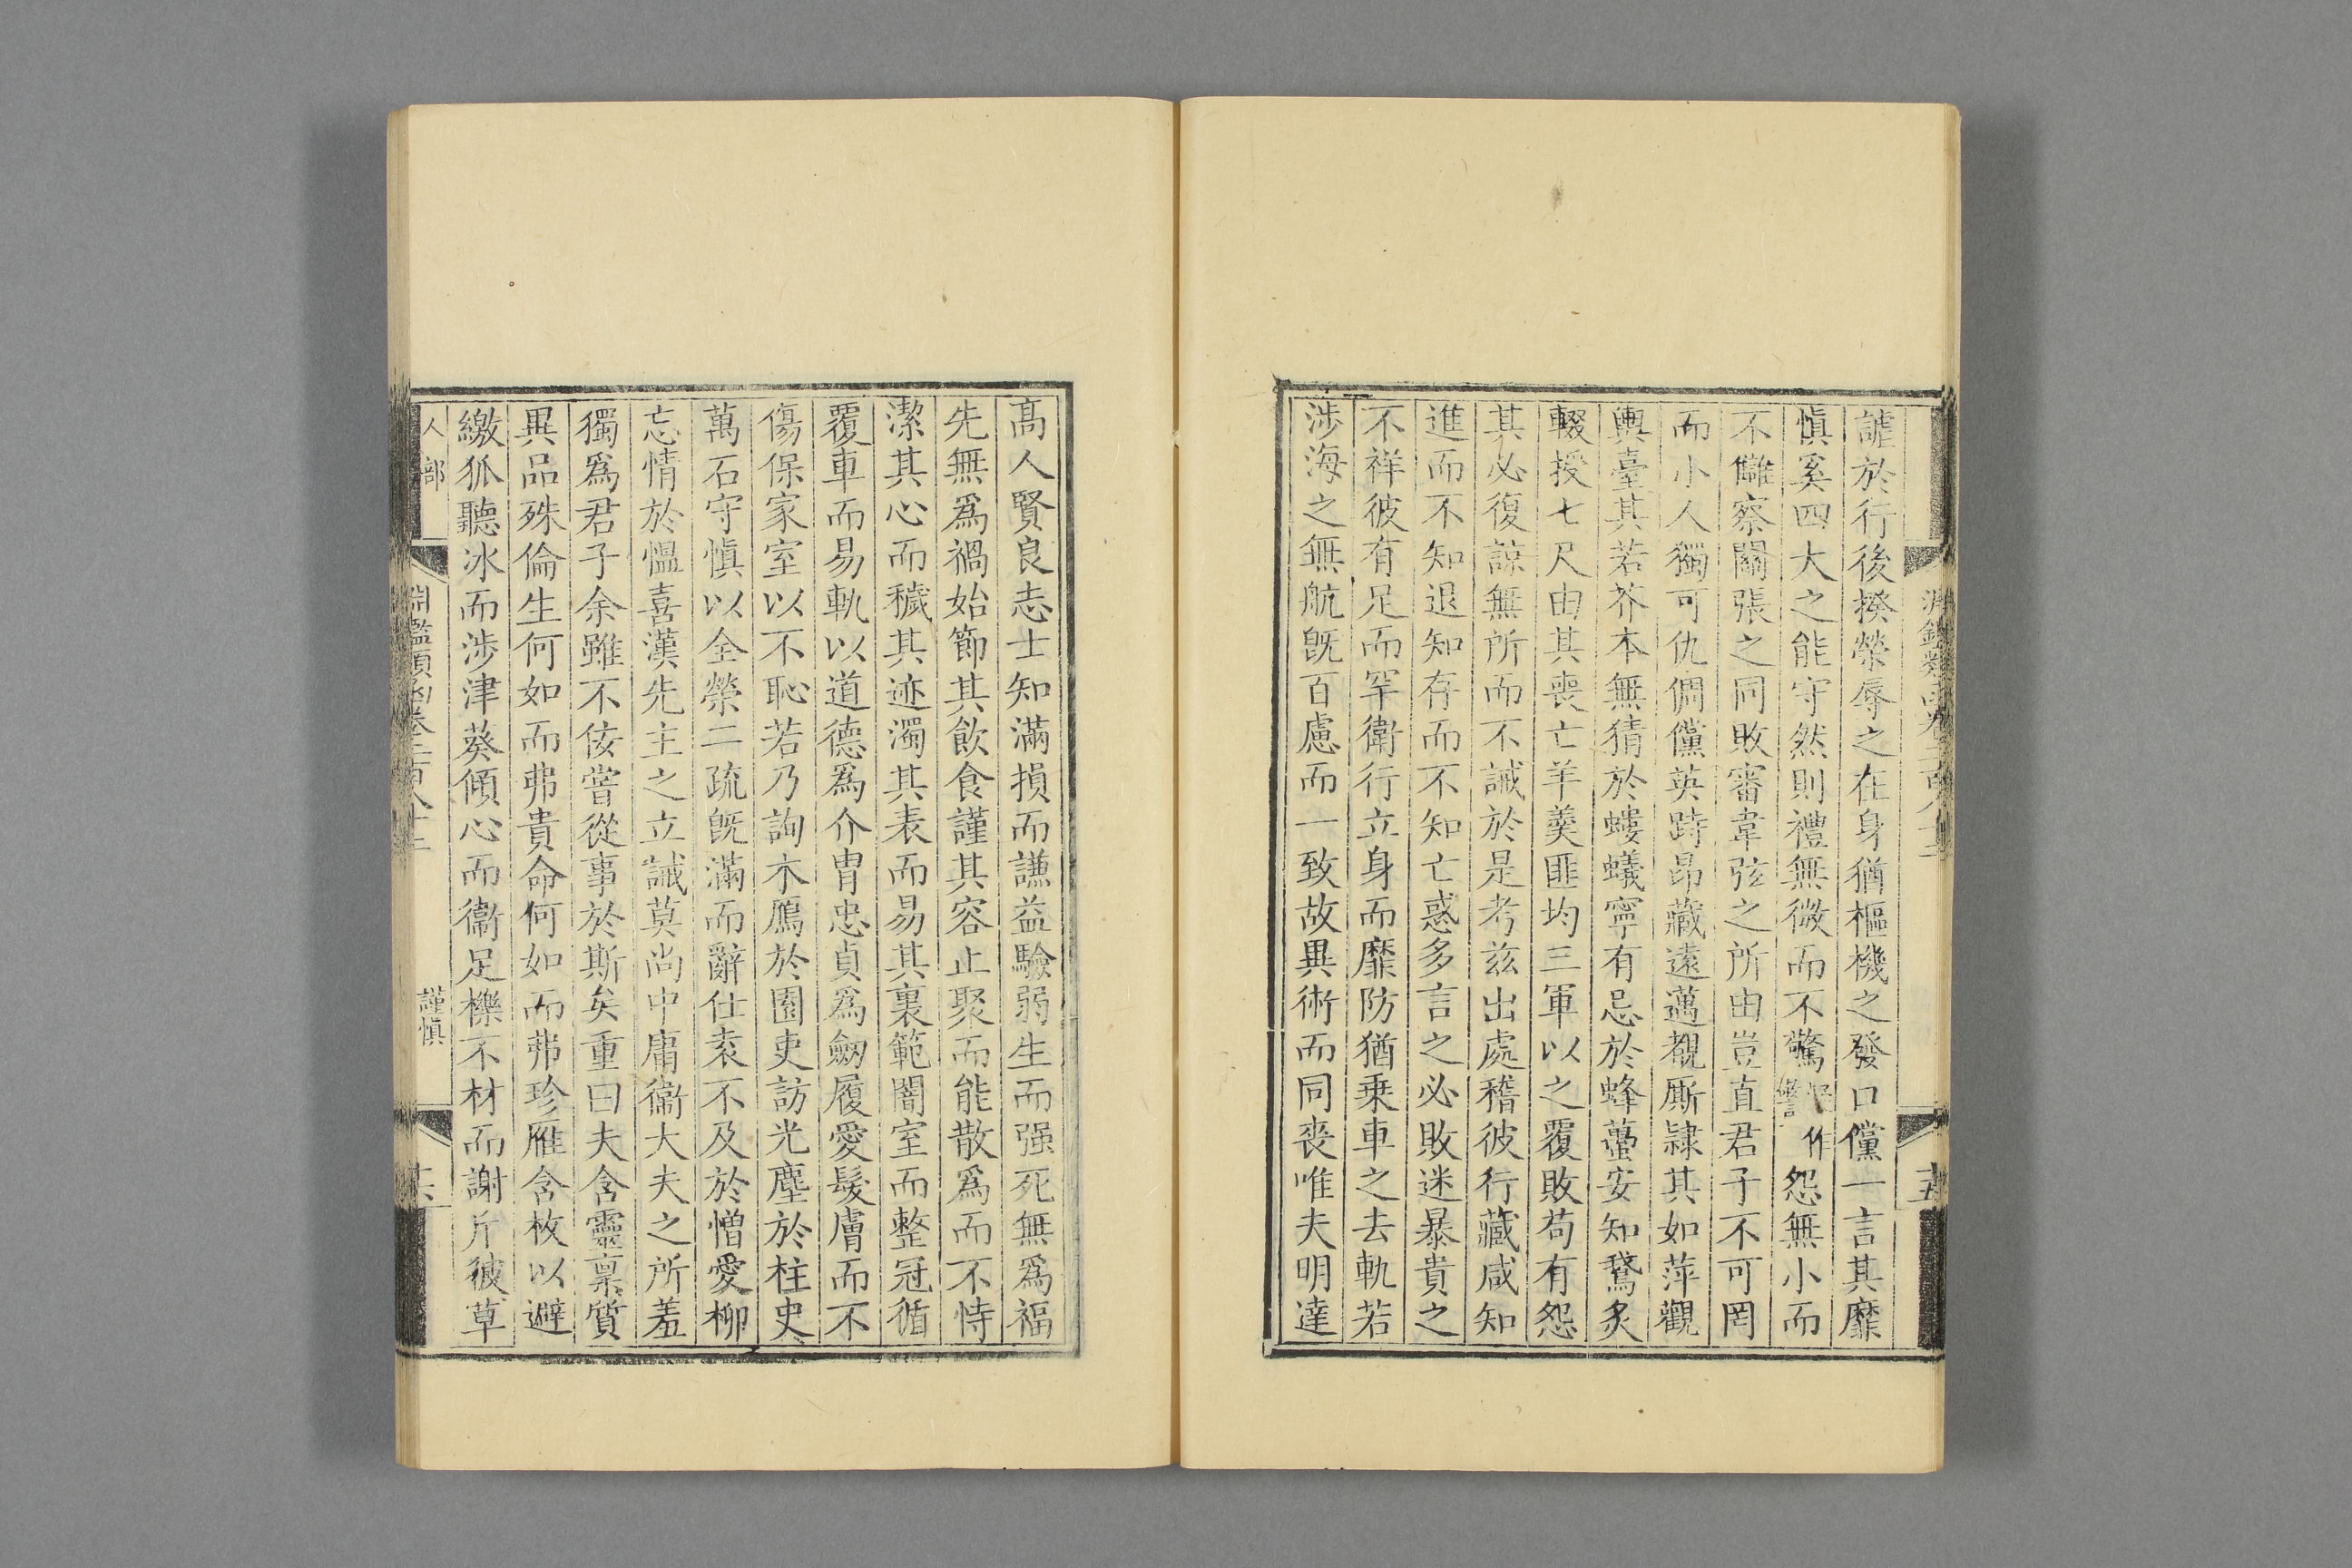 謔於行後揆榮辱之在身猶樞機之發口儻一言其靡
慎奚四大之能守然則禮無微而不驚怨無小而
不讎察關張之同敗審韋弦之所由豈直君子不可罔
而小人獨可仇倜儻英跱昂藏遠邁覩厮隷其如萍觀
輿臺其若芥本無猜於螻蟻寧有忌於蜂蠆安知鵞炙
輟授七尺由其喪亡羊羮匪均三軍以之覆敗苟有怨
其必復諒無所而不誡於是考兹出處稽彼行藏咸知
進而不知退知存而不知亡惑多言之必敗迷暴貴之
不祥彼有足而罕衛行立身而靡防猶乗車之去軌若
涉海之無航旣百慮而一致故異術而同喪唯夫明達
高人賢良志士知滿損而謙益驗弱生而强死無爲福
先無爲禍始節其飲食謹其容止聚而能散爲而不恃
潔其心而穢其迹濁其表而易其裏範闇室而整冠循
覆車而易軌以道德爲介冑忠貞爲劒履愛髮膚而不
傷保家室以不恥若乃詢木鴈於園吏訪光塵於柱史
萬石守慎以全榮二疏旣滿而辭仕袁不及於憎愛柳
忘情於慍喜漢先主之立誡莫尚中庸衞大夫之所羞
獨爲君子余雖不佞嘗從事於斯矣重曰夫含靈稟質
異品殊倫生何如而弗貴命何如而弗珍雁含枚以避
繳狐聽冰而涉津葵傾心而衞足櫟不材而謝斤彼草
人部
淵鑑類函卷二百八十二
謹慎